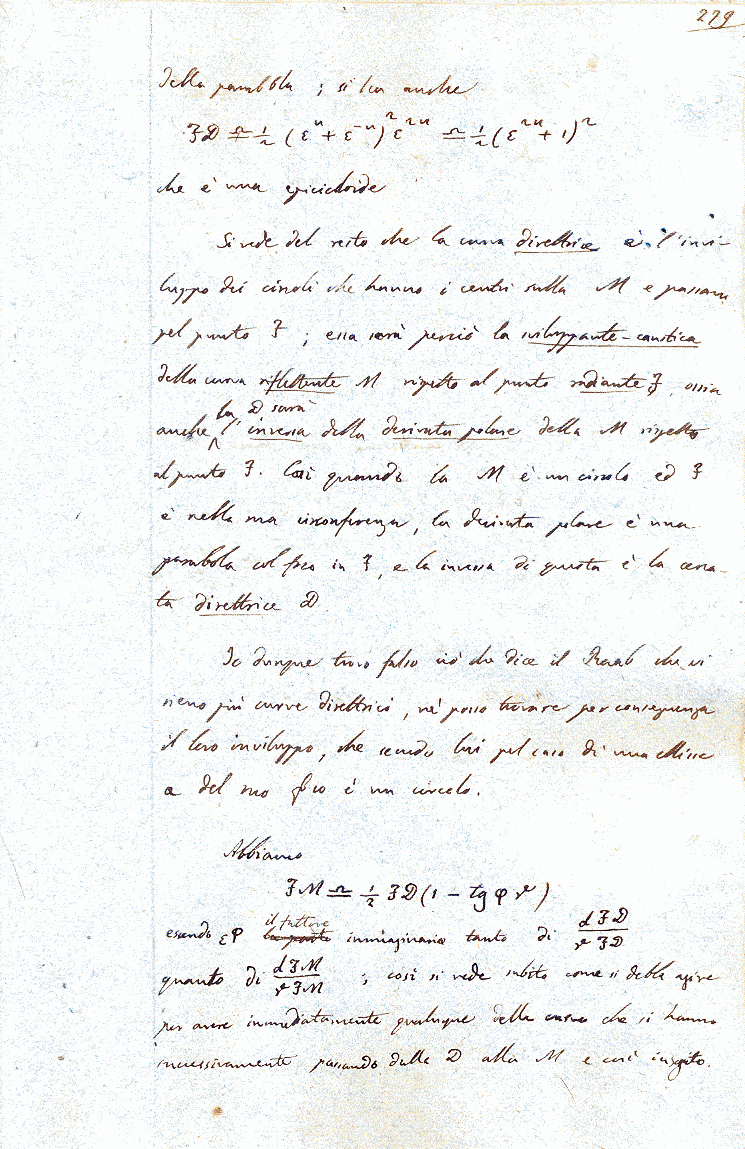 279
della parabola ; si ha anche
FD ≏ 1/2 (ε^u + ε^-u)^2 ε^2u ≏ 1/2 (ε^2u + 1)^2
che è una epicicloide
Si vede del resto che la curva direttrice è l'invi-
luppo dei circoli che hanno i centri sulla M e passano
pel punto F ; essa sarà perciò la sviluppante-caustica
della curva riflettente M rispetto al punto radiante F, ossia
la D sarà
anche l'inversa della derivata polare della M rispetto
al punto F. Così quando la M è un circolo ed F
è nella sua circonferenza, la derivata polare è una
parabola col foco in F, e la inversa di questa è la cerca-
ta direttrice D.
Io dunque trovo falso ciò che dice il Raab che vi
sieno più curve direttrici, nè posso trovare per conseguenza
il loro inviluppo, che secondo lui pel caso di una ellisse
e del suo foco è un circolo.
Abbiamo
FM ≏ 1/2 FD (1 − tg φ √)
il fattore
essendo εφ la parte immaginaria tanto di dFD/√FD
quanto di dFM/√FM ; così si vede subito come si debba agire
per avere immediatamente qualunque delle curve che si hanno
successivamente passando dalla D alla M e così in seguito.